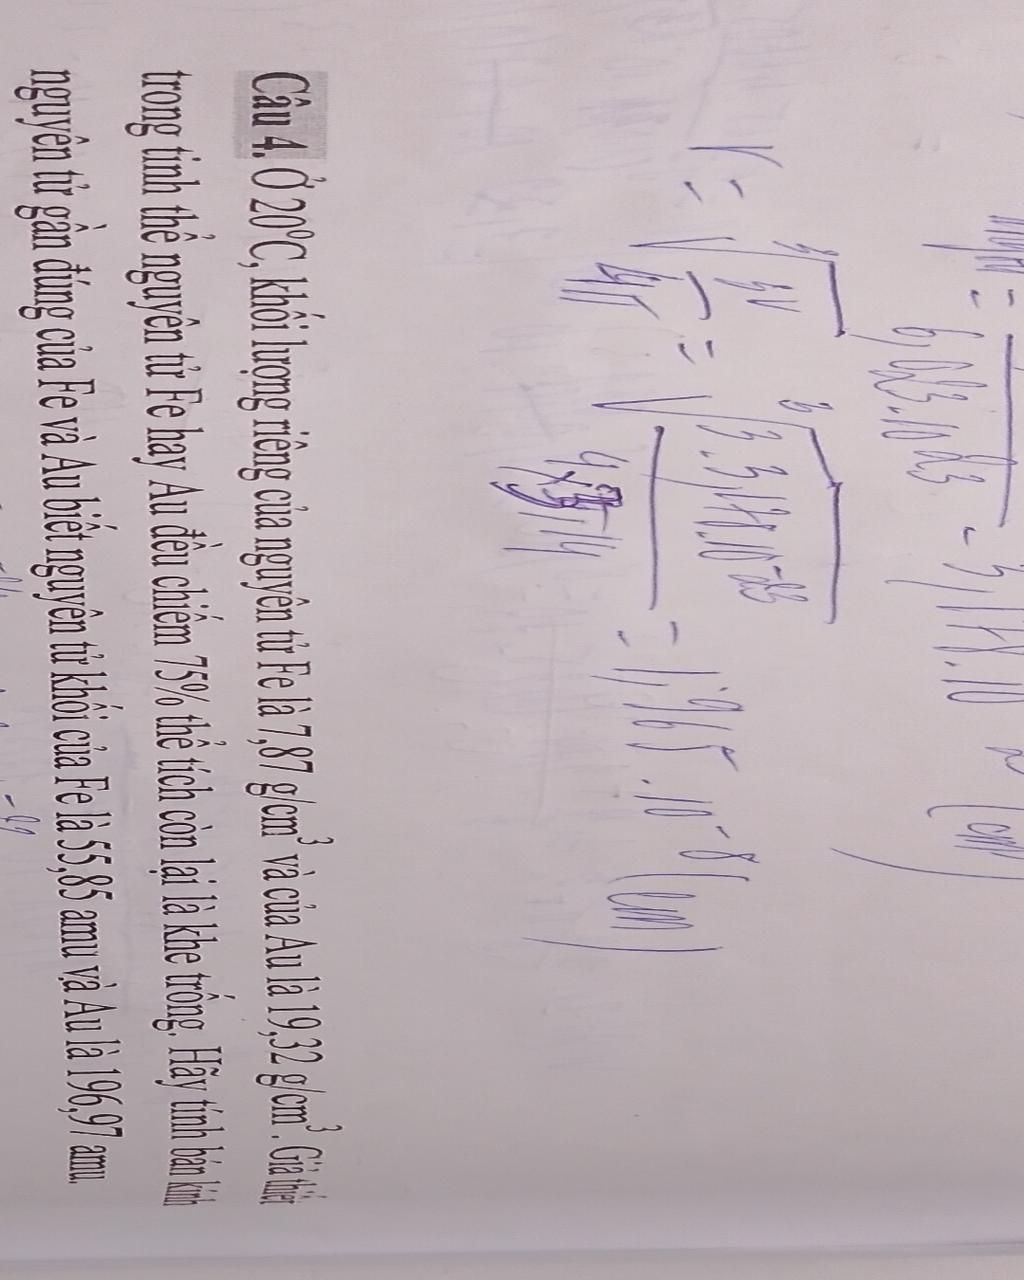 6,023.10²³
r = ³√(3V/4π) = ³√(3.3,18.10⁻²³/4×3,14) = 1,965.10⁻⁸ (cm)
Câu 4. Ở 20°C, khối lượng riêng của nguyên tử Fe là 7,87 g/cm³ và của Au là 19,32 g/cm³. Giả thiết
trong tinh thể nguyên tử Fe hay Au đều chiếm 75% thể tích còn lại là khe trống. Hãy tính bán kính
nguyên tử gần đúng của Fe và Au biết nguyên tử khối của Fe là 55,85 amu và Au là 196,97 amu.